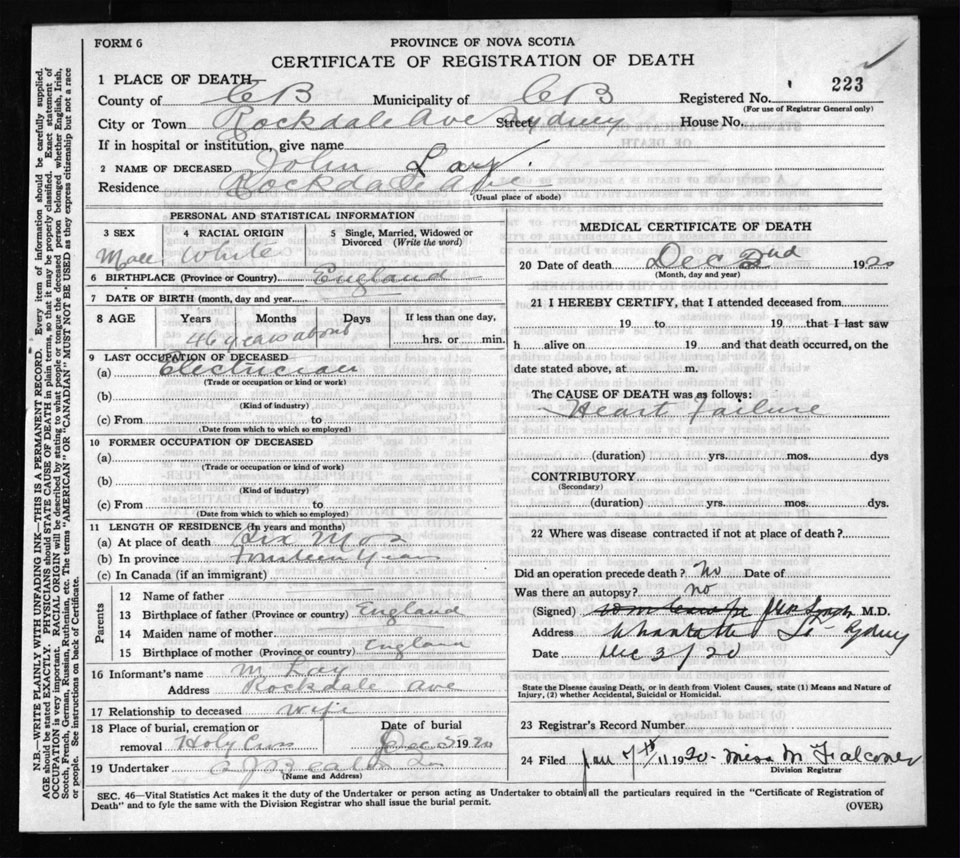 FORM 6
PROVINCE OF NOVA SCOTIA
CERTIFICATE OF REGISTRATION OF DEATH
223
1 PLACE OF DEATH
County of C B Municipality of C B Registered No.
(For use of Registrar General only)
City or Town Rockdale Ave Sydney Street House No.
If in hospital or institution, give name
2 NAME OF DECEASED John
Residence Rockdale Ave
(Usual place of abode)
PERSONAL AND STATISTICAL INFORMATION
3 SEX 4 RACIAL ORIGIN 5 Single, Married, Widowed or Divorced (Write the word)
Male White
6 BIRTHPLACE (Province or Country) England
7 DATE OF BIRTH (month, day and year)
8 AGE Years Months Days If less than one day,
46 years about hrs. or min.
9 LAST OCCUPATION OF DECEASED
(a) Electrician
(Trade or occupation or kind or work)
(b)
(Kind of industry)
(c) From to
(Date from which to which so employed)
10 FORMER OCCUPATION OF DECEASED
(a)
(Trade or occupation or kind of work)
(b)
(Kind of industry)
(c) From to
(Date from which to which so employed)
11 LENGTH OF RESIDENCE (In years and months)
(a) At place of death Six Mos
(b) In province Fourteen Years
(c) In Canada (if an immigrant)
Parents
12 Name of father
13 Birthplace of father (Province or country) England
14 Maiden name of mother
15 Birthplace of mother (Province or country) England
16 Informant's name M
Address Rockdale Ave
17 Relationship to deceased Wife
18 Place of burial, cremation or removal Holy Cross
Date of burial Dec 1920
19 Undertaker
(Name and Address)
MEDICAL CERTIFICATE OF DEATH
20 Date of death Dec 2nd 1920
(Month, day and year)
21 I HEREBY CERTIFY, that I attended deceased from
19 to 19 that I last saw
h alive on 19 and that death occurred, on the
date stated above, at m.
The CAUSE OF DEATH was as follows:
Heart Failure
(duration) yrs. mos. dys
CONTRIBUTORY
(Secondary)
(duration) yrs. mos. dys.
22 Where was disease contracted if not at place of death?
Did an operation precede death? No Date of
Was there an autopsy? no
(Signed) M.D.
Address Charlotte St Sydney
Date Dec 3/20
State the Disease causing Death, or in death from Violent Causes, state (1) Means and Nature of
Injury, (2) whether Accidental, Suicidal or Homicidal.
23 Registrar's Record Number
24 Filed 1920 Miss M Falconer
Division Registrar
SEC. 46—Vital Statistics Act makes it the duty of the Undertaker or person acting as Undertaker to obtain all the particulars required in the "Certificate of Registration of
Death" and to fyle the same with the Division Registrar who shall issue the burial permit.
(OVER)
N.B.—WRITE PLAINLY WITH UNFADING INK—THIS IS A PERMANENT RECORD. Every item of information should be carefully supplied.
AGE should be stated EXACTLY. PHYSICIANS should STATE CAUSE OF DEATH in plain terms, so that it may be properly classified. Exact statement of
OCCUPATION is very important. RACIAL ORIGIN will be described by stating to what people or tongue the deceased person belonged, whether English, Irish,
Scotch, French, German, Russian, Ruthenian, etc. The terms "AMERICAN" or "CANADIAN" MUST NOT BE USED as they express citizenship but not a race
or people. See instructions on back of Certificate.